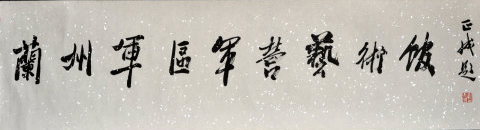 蘭州軍區軍營藝術館
正成題